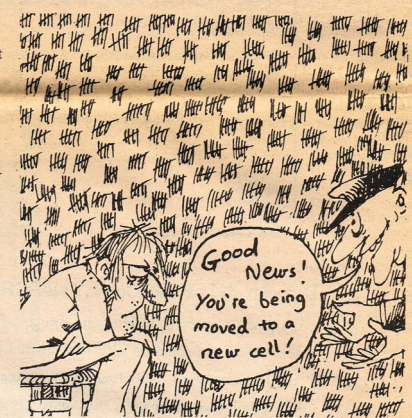 Good
News!
You're being
moved to a
new cell!